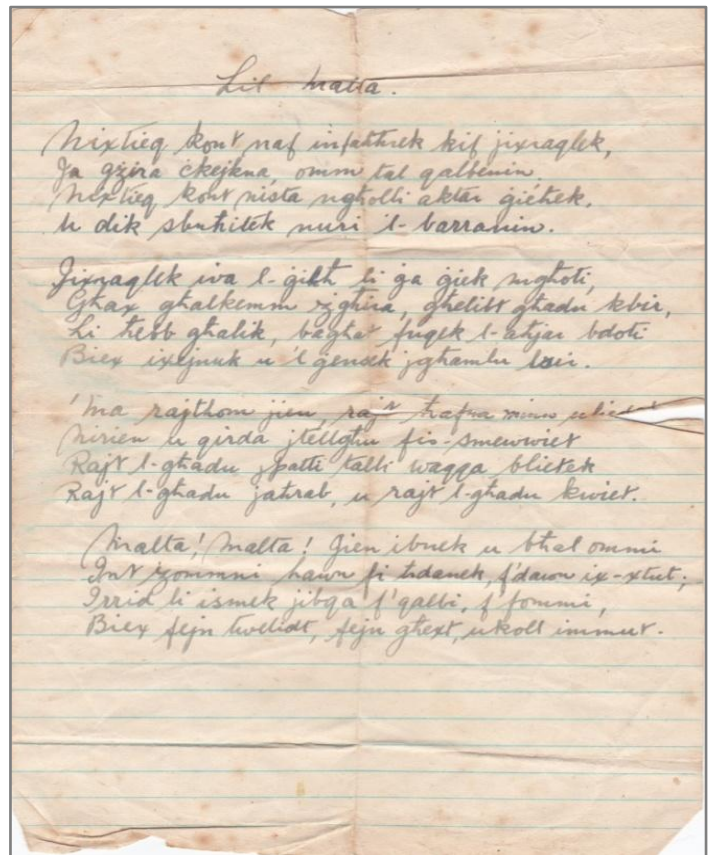 Lil Malta.
Nixtieq kont naf infahhrek kif jixraqlek,
Ja gzira ckejkna, omm tal qalbenin.
Nixtieq kont nista ngholli aktar giehek,
U dik sbuhitek nuri 'l-barranin.
Jixraqlek iva l-gieh li ga giek moghoti,
Ghax ghalkemm zghira, ghelibt ghadu kbir,
Li hebb ghalik, baghat fuqek l-ahjar
Biex ixejnuk u 'l gensek jghamlu
Ma rajthom jien, rajt hafna minn uliedek
Nirien u qirda jtellghu fis-smewwiet
Rajt l-ghadu jpatti talli waqqa blietek
Rajt l-ghadu jahrab, u rajt l-ghadu kwiet.
Malta! Malta! Jien ibnek u bhal ommi
Int zommni hawn fi hdanek, f'dawn ix-xtut;
Irrid li ismek jibqa f'qalbi, f'fommi,
Biex fejn twelidt, fejn ghext, ukoll immut.